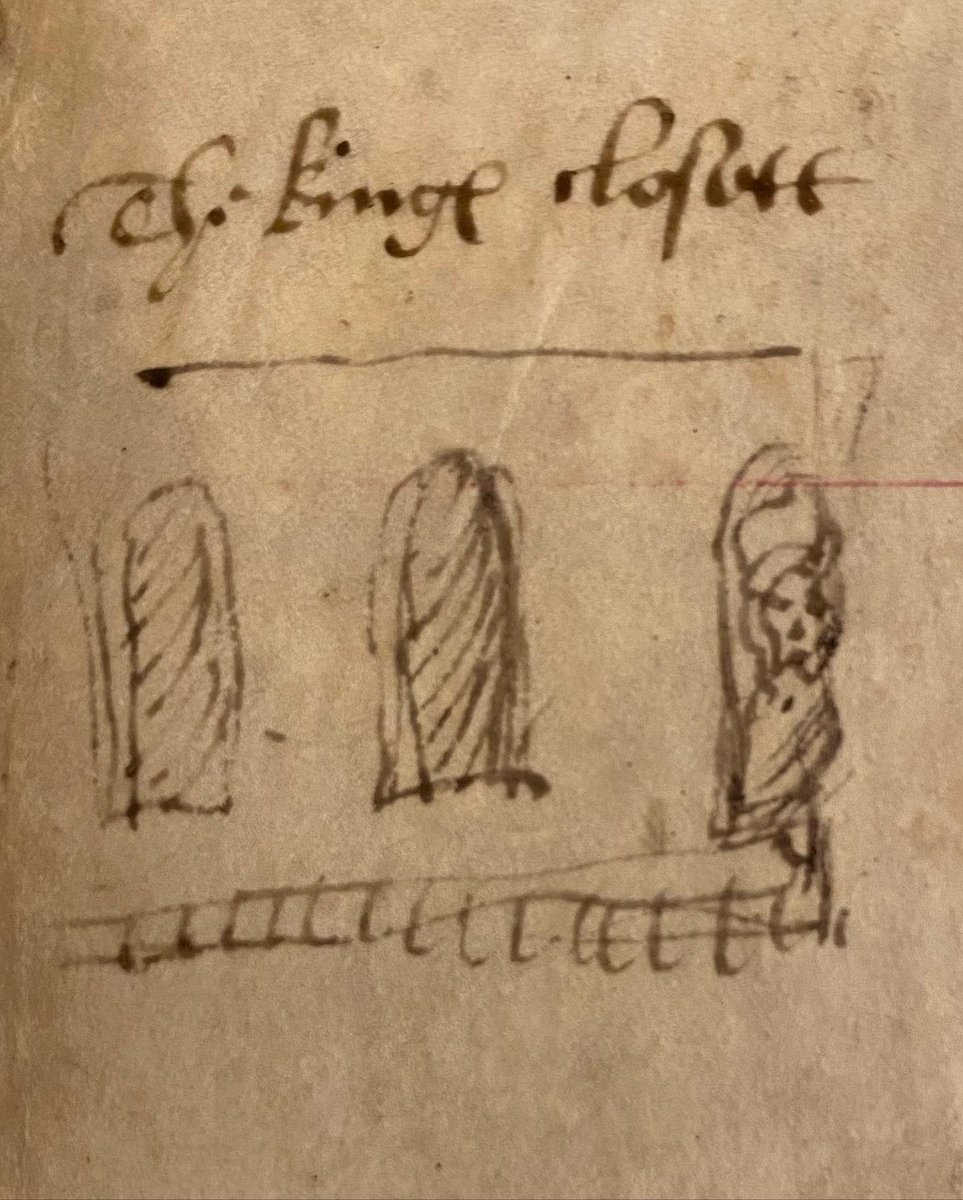 The kinges closett